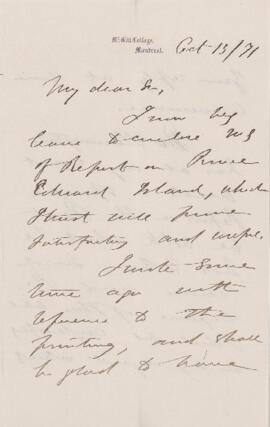 McGill College,
Montreal.
Oct 13/71
My dear Sir,
I now beg
leave to enclose MS
of Report on Prince
Edward Island, which
I trust will prove
satisfactory and useful.
I wrote some
time ago with
reference to the
printing, and shall
be glad to have